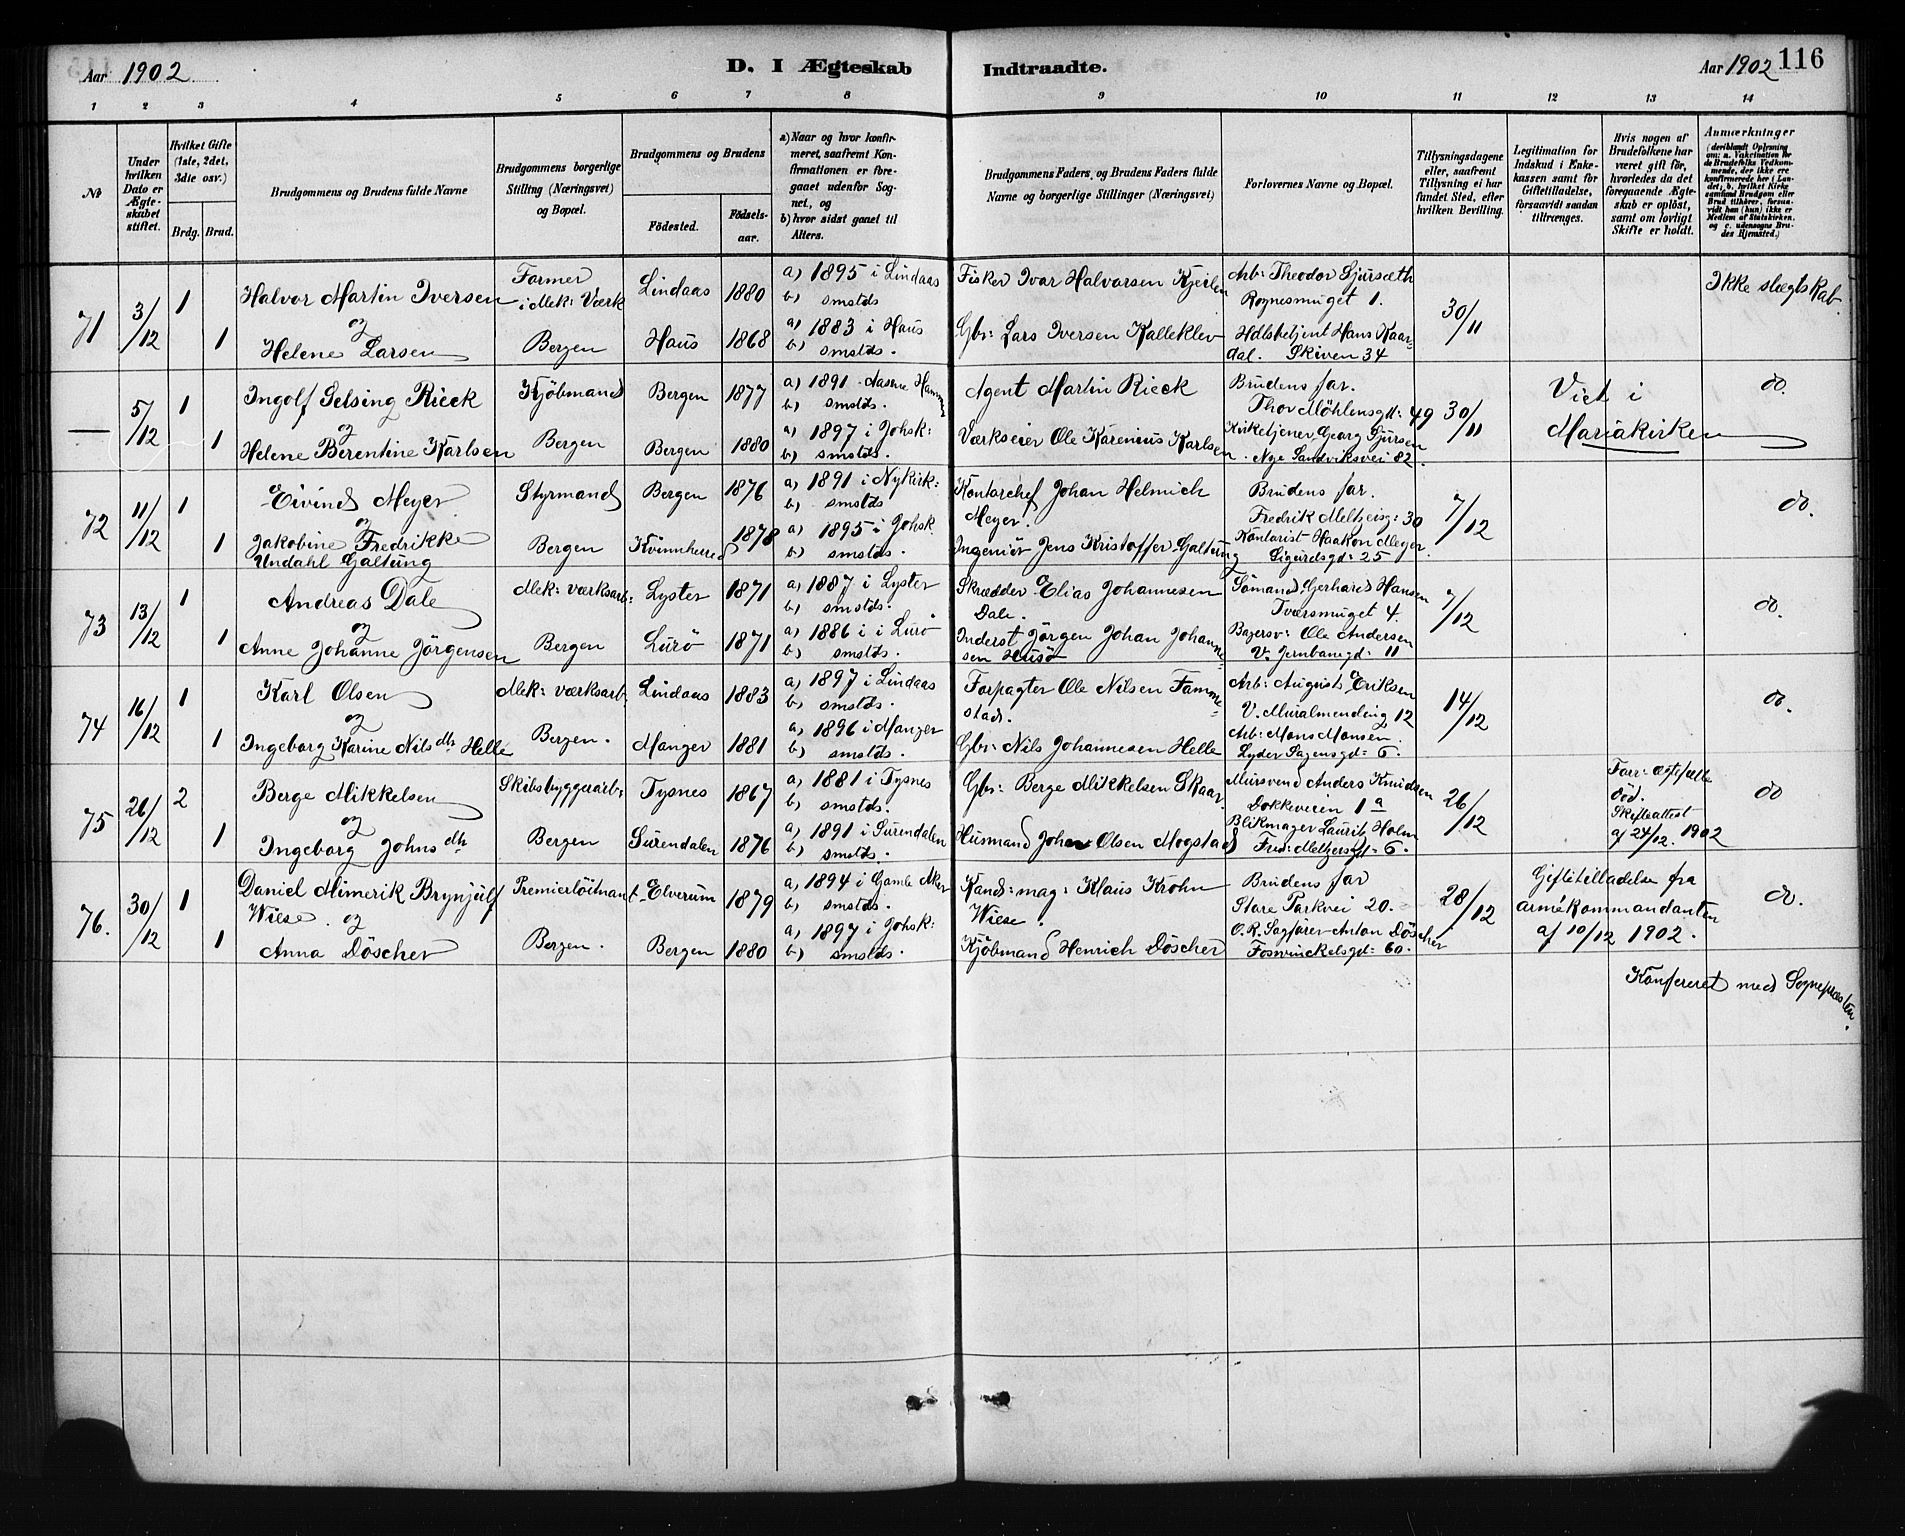 Aar 1902
D. I Ægteskab Indtraadte.
Aar 1902 116
1 2 3 4 5 6 7 8 9 10 11 12 13 14
No
Under hvilken Dato er Ægteskabet stiftet.
Hvilket Gifte (1ste, 2det, 3die osv.)
Brdg. Brud.
Brudgommens og Brudens fulde Navne
Brudgommens borgerlige Stilling (Næringsvei) og Bopæl.
Brudgommens og Brudens
Födested. Födselsaar.
a) Naar og hvor konfirmeret, saafremt Konfirmationen er foregaaet udenfor Sognet, og
b) hvor sidst gaaet til Alters.
Brudgommens Faders, og Brudens Faders fulde Navne og borgerlige Stillinger (Næringsvei)
Forlovernes Navne og Bopæl.
Tillysningsdagene eller, saafremt Tillysning ei har fundet Sted, efter hvilken Bevilling.
Legitimation for Indskud i Enkekassen samt for Giftetilladelse, forsaavidt saadan tiltrænges.
Hvis nogen af Brudefolkene har været gift før, hvorledes da det foregaaende Ægteskab er oplöst, samt om lovligt Skifte er holdt.
Anmærkninger (deriblandt Oplysning om: a. Vakcination for de Brudefolks Vedkommende, der ikke ere konfirmerede her i Landet; b. hvilket Kirkesamfund Brudgom eller Brud tilhører, forsaavidt han (hun) ikke er Medlem af Statskirken. og c. udensogns Brudes Hjemsted.)
71 3/12 1 Halvor Martin Iversen Formeri Mek: Værk Lindaas 1880 a) 1895 i Lindaas b) smstds Fisker Ivar Halvorsen Arb: Theodor Gjursæth Rognesmuget 1. 30/11 Ikke slægtskab.
og
1 Helene Larsen Bergen Haus 1868 a) 1883 i Haus b) smstds. Gbr: Lars Iversen Kalleklev Hdlsbetjent Hans Kaardal. Skiven 34
— 5/12 1 Ingolf Selsing Rieck Kjöbmand Bergen 1877 a) 1891 b) smstds. Agent Martin Rieck Brudens far. Thor Möhlensgd: 49 30/11 Viet i Mariakirken do.
og
1 Helene Berentine Karlsen Bergen Bergen 1880 a) 1897 i Johsk: b) smstds. Værkseier Ole Karenius Karlsen Kirketjener Georg Gjursen. Nye Sandviksvei 82.
72 11/12 1 Eivind Meyer Styrmand Bergen 1876 a) 1891 i Nykirk: b) smstds Kontorchef Johan Helmich Meyer. Brudens far. Fredrik Meltzersg: 30 7/12 do.
og
1 Jakobine Fredrikke Undahl Galtung Bergen Kvinnherred 1878 a) 1895 i Johsk. b) smstds. Ingeniör Jens Kristoffer Galtung Kontorist Haakon Meyer. Sigurdsgd: 25
73 13/12 1 Andreas Dale Mek: værksarb: Lyster 1871 a) 1887 i Lyster b) smstds. Skrædder Elias Johannesen Dale. Sömand Gerhard Hansen Tværsmuget 4. 7/12 do.
og
1 Anne Johanne Jörgensen Bergen Lurö 1871 a) 1886 i i Lurö b) smstds. Inderst Jörgen Johan Johannesen Husö Bagersv: Ole Andersen V. Jernbanegd: 11
74 16/12 1 Karl Olsen Mek: værksarb. Lindaas 1883 a) 1897 i Lindaas b) smstds. Forpagter Ole Nilsen Fammestad. Arb: August Eriksen V. Muralmending 12 14/12 do.
og
1 Ingeborg Karine Nilsdtr Helle Bergen. Manger 1881 a) 1896 i Manger b) smstds. Gbr: Nils Johannesen Helle Arb: Mons Monsen. Lyder Sagensgd: 6.
75 26/12 2 Berge Mikkelsen Skibsbyggerarb: Tysnes 1867 a) 1881 i Tysnes b) smstds. Gbr: Berge Mikkelsen Skaar. Mursvend Anders Knudsen Dokkeveien 1a 26/12 Forr: ægtefælle död. Skifteattest af 24/12. 1902 do
og
1 Ingeborg Johnsdtr Bergen Surendalen 1876 a) 1891 i Surendalen b) smstds. Husmand Johan Olsen Mogstad Blikmager Laurits Holm Fred: Meltzersgd: 6.
76. 30/12 1 Daniel Mimerik Brynjulf Wiese. og Premierlöitnant Elverum 1879 a) 1894 i Gamle Aker b) smstds. Kand: mag: Klaus Krohn Wiese. Brudens far Store Parkvei 20. 28/12 Giftetilladelse fra armékommandanten af 10/12 1902. do.
1 Anna Döscher Bergen. Bergen 1880 a) 1897 i Johsk: b) smstds. Kjöbmand Henrich Döscher O.R. Sagförer Anton Döscher Foswinckelsgd: 60.
Konfereret med Sognepresten.